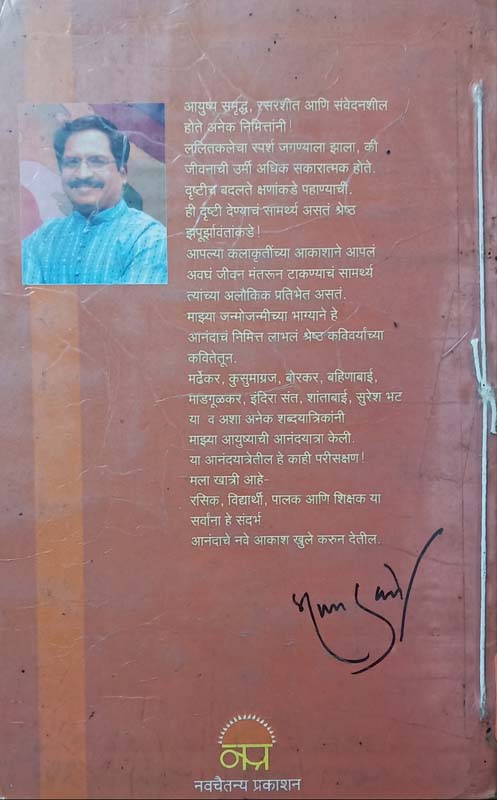 आयुष्य समृद्ध, रसरशीत आणि संवेदनशील
होते अनेक निमित्तांनी!
ललितकलेचा स्पर्श जगण्याला झाला, की
जीवनाची उर्मी अधिक सकारात्मक होते.
दृष्टीच बदलते क्षणांकडे पहाण्याची.
ही दृष्टी देण्याचं सामर्थ्य असतं श्रेष्ठ
झपूर्झावंतांकडे!
आपल्या कलाकृतींच्या आकाशाने आपलं
अवघं जीवन मंतरून टाकण्याचं सामर्थ्य
त्यांच्या अलौकिक प्रतिभेत असतं.
माझ्या जन्मोजन्मीच्या भाग्याने हे
आनंदाचं निमित्त लाभलं श्रेष्ठ कविवर्यांच्या
कवितेतून.
मर्ढेकर, कुसुमाग्रज, बोरकर, बहिणाबाई,
माडगूळकर, इंदिरा संत, शांताबाई, सुरेश भट
या व अशा अनेक शब्दयात्रिकांनी
माझ्या आयुष्याची आनंदयात्रा केली.
या आनंदयात्रेतील हे काही परीसक्षण!
मला खात्री आहे-
रसिक, विद्यार्थी, पालक आणि शिक्षक या
सर्वांना हे संदर्भ
आनंदाचे नवे आकाश खुले करुन देतील.
नप्र
नवचैतन्य प्रकाशन